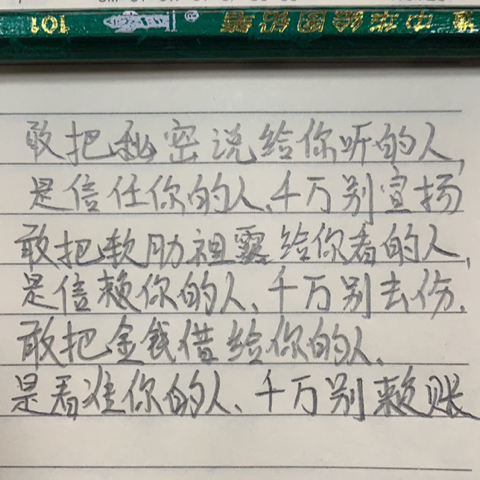 101
敢把秘密说给你听的人,
是信任你的人、千万别宣扬
敢把软肋祖露给你看的人,
是信赖你的人、千万别去伤.
敢把金钱借给你的人.
是看准你的人、千万别赖账